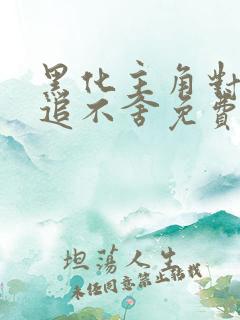 黑化主角對
追不舍免費
坦蕩人生
未經同意禁止轉載